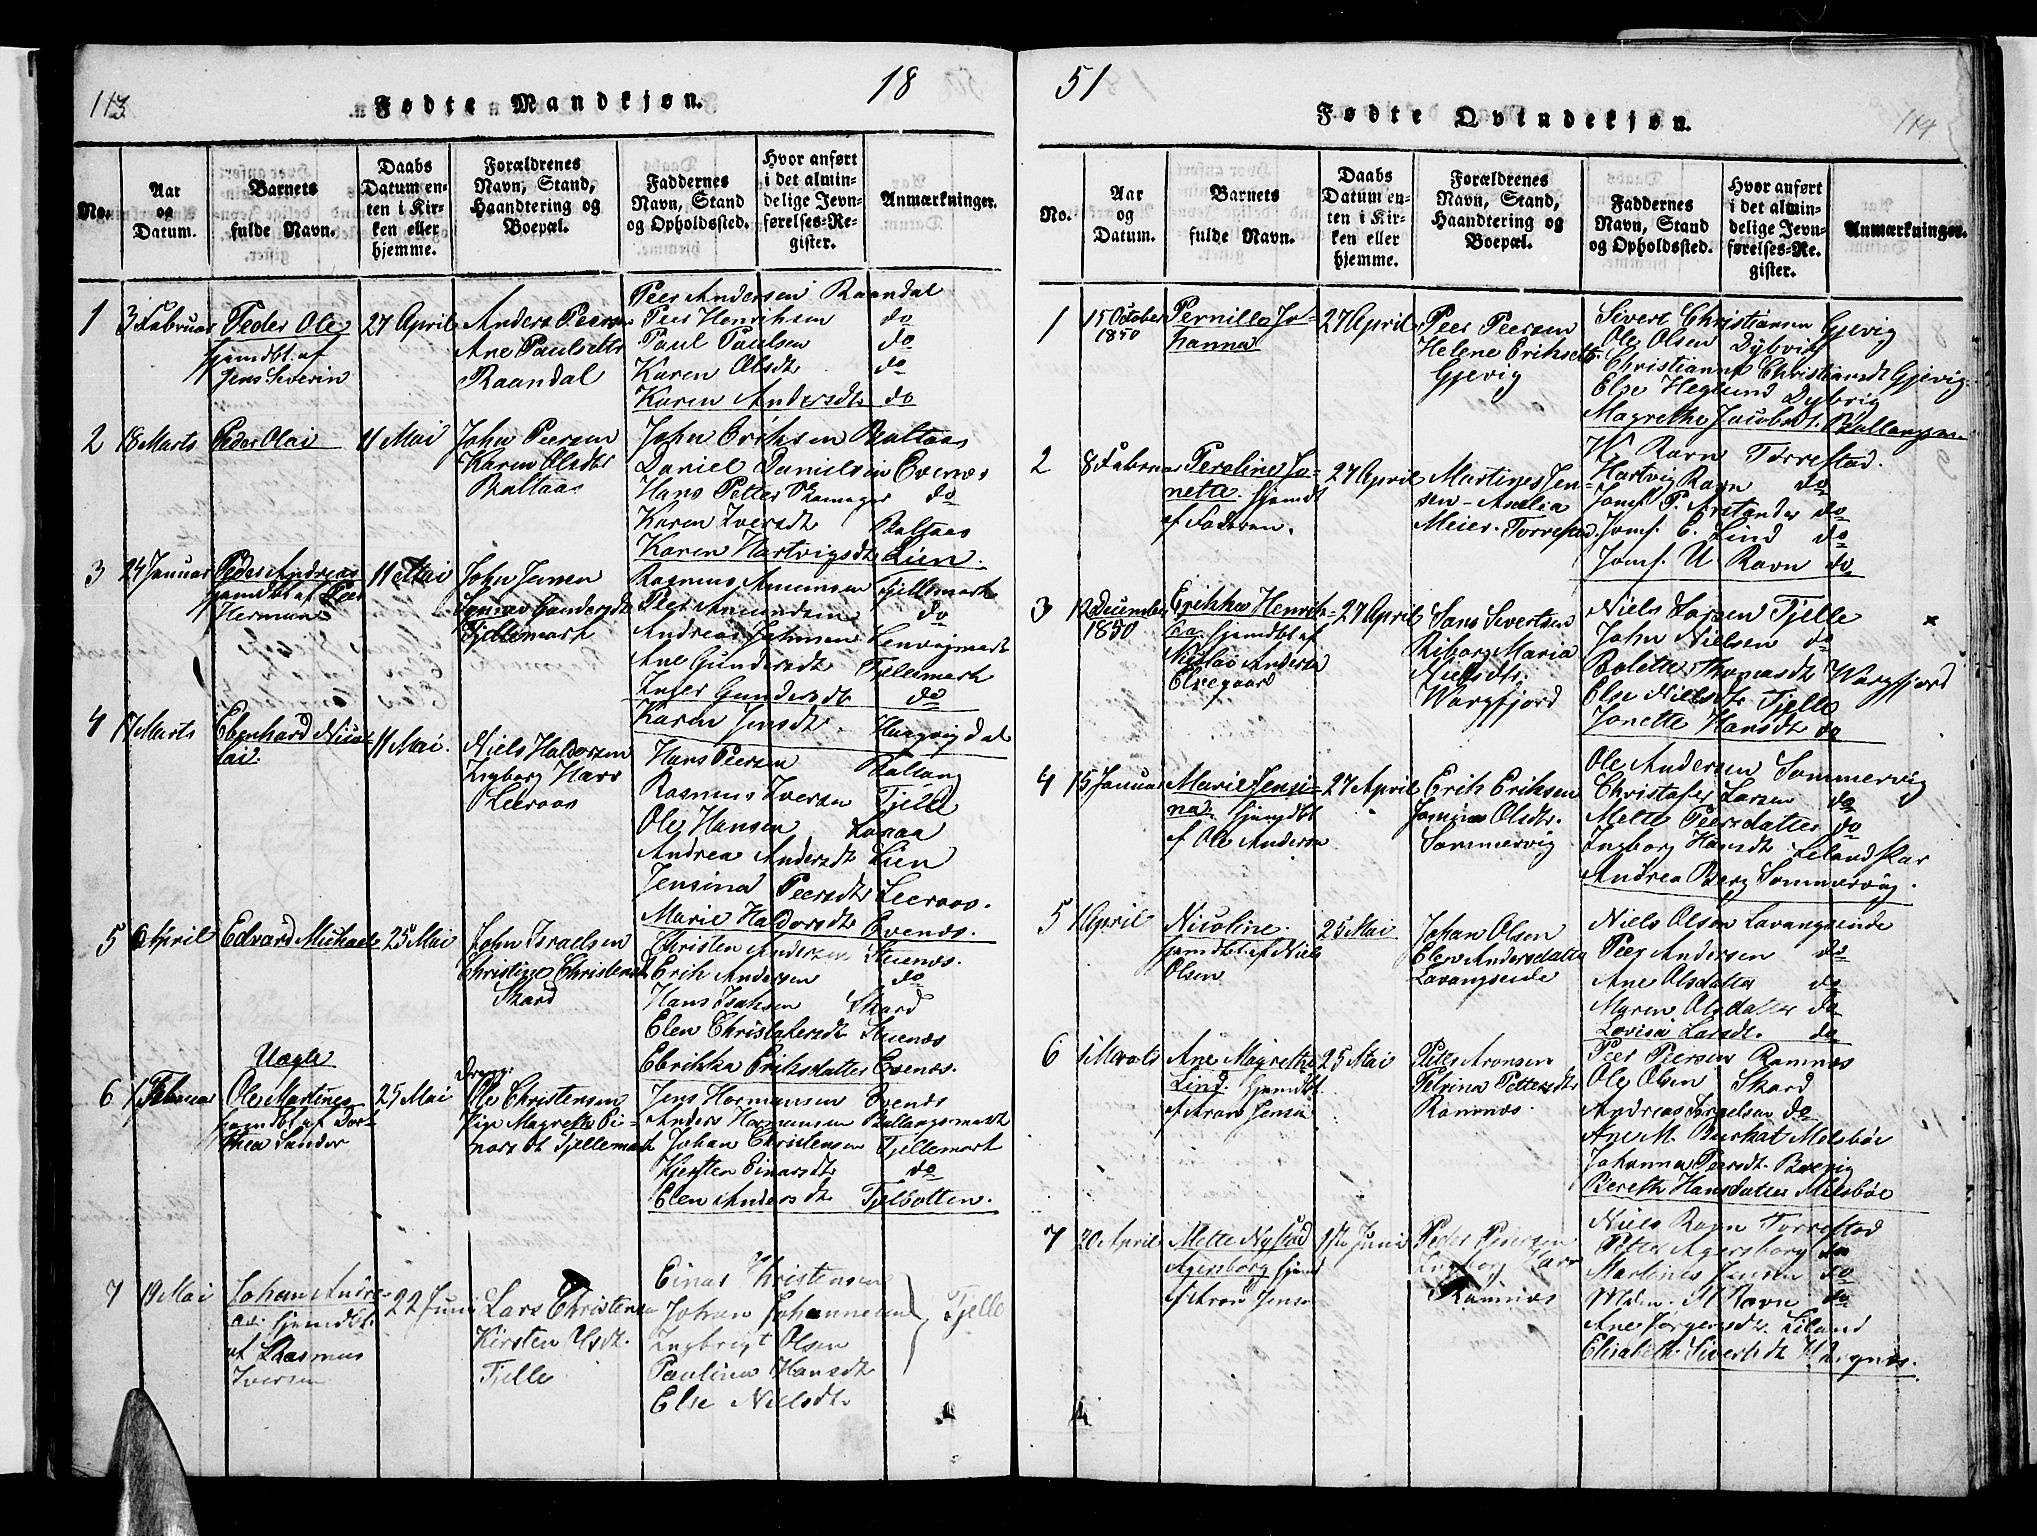 113
Fødte Mandkjøn.
18
No.
Aar og Datum.
Barnets fulde Navn.
Daabs Datum enten i Kirken eller hjemme.
Forældrenes Navn, Stand, Haandtering og Boepæl.
Faddernes Navn, Stand og Opholdssted.
Hvor anført i det almindelige Jevnførelses-Register.
Anmærkninger.
1 3 Februar Peder Ole 27 April
hjemdbt. af
Jens Severin
Anders Peersen
Ane Paulsdtr
Raandal
Peer Andersen Raandal
Peer Henriksen do
Paul Paulsen do
Karen Olsdtr do
Karen Andersdtr do
2 18 Marts Peder Olai 11 Mai
John Peersen
Karen Olsdtr
Baltaas
John Eriksen Baltaas
Daniel Danielsen Evenæs
Hans Petter do
Karen Iversdtr Baltaas
Karen Hartvigsdtr Lien.
3 24 Januar Peder Andreas 11 Mai
hjemdbt af Peer
Herman
John Jensen
Gundersdtr
Tjellemark
Rasmus Amundsen Tjellemark
Peer Amundsen do
Andreas Johnsen
Ane Gundersdtr Tjellemark
Inger Gundersdtr do
4 17 Marts Ebenhard Nico-
lai. 11 Mai.
Niels Haldorsen
Ingborg Hans
Leeraas
Karen Jensdtr
Hans Peersen Ballang
Rasmus Iversen Tjelle
Ole Hansen
Andrea Andersdtr Lien
Jensina Peersdtr Leeraas.
Marie Haldorsdtr Evenæs.
5 6 April Edvard Michael 25 Mai
John Israelsen
Christine Christensdt
Skard
Christen Andersen
Erik Andersen do
Hans Isaksen Skard
Elen Christofersdt
Ebrikka Eriksdatter Evenæs.
Uægte
6 1 Februar Ole Martines 25 Mai
hjemdbt af Dor-
thea Sander
Dreng
Ole Christensen
Pige Magrethe Ei-
narsdt Tjellemark
Jens Hermansen Evenæs
Anders Hermansen Ballangsmark
Johan Christensen Tjellemark
Kjersten Einarsdt do
Elen Andersdt Tjelbotten.
7 19 Mai Johan Andre-
as. hjemdbt. 22 Juni
af Rasmus
Iversen
Lars Christensen
Kirsten Olsdt.
Tjelle
Einar Christensen
Johan Johannesen
Ingbrigt Olsen Tjelle
Paulina Hansdt
Else Nielsdt.
51
114
Fødte Qvindekjøn.
No.
Aar og Datum.
Barnets fulde Navn.
Daabs Datum enten i Kirken eller hjemme.
Forældrenes Navn, Stand, Haandtering og Boepæl.
Faddernes Navn, Stand og Opholdssted.
Hvor anført i det almindelige Jevnførelses-Register.
Anmærkninger.
1 15 October Pernille Jo- 27 April
1850 hanna
Peer Peersen
Helene Eriksdtr.
Gjevig
Sivert Christiansen Gjevig
Ole Olsen Dybvig
Christianna Christiansdt Gjevig
Else Heglund Dybvig
Magrethe Jacobsdt. Ballangen
2 8 Februar Peroline Jo- 27 April
netta. hjemdt
af Faderen.
Martines Jen-
sen - Amalia
Meier. Torrestad
K. Ravn Torrestad.
Hartvig Ravn do
Jomf P. Arstander do
Jomf. E. Lind do
Jomf. U Ravn do
3 12 December Erikka Henrik- 27 April
1850 hjemdbt af
Nikolai Anderse
Elvegaard
Hans Sivertsen
Riborg Maria
Nielsdtr.
Wargfjord
Niels Larsen Tjelle
John Nielsen do
Bolette Thomasdt Wargfjord
Else Nielsdtr Tjelle
Jonetta Hansdt do
4 15 Januar Marie Jensi- 27 April
na. hjemdbt
af Ole Andersen
Erik Eriksen
Olsdtr.
Sommervig
Ole Andersen Sommervig
Christofer Larsen do
Mette Peersdatter do
Ingborg Hansdt Lelandskar
Andrea Berg Sommervig.
5 1 April Nicoline. 25 Mai
hjemdbt. af Niels
Olsen
Johan Olsen
Elen Andersdatter
Lavangseide
Niels Olsen Lavangseide
Peer Andersen do
Ane Olsdatter do
Maren Olsdatter do
Lovisa Larsdt. do
6 1 Marts Ane Magrethe 25 Mai
Lind. hjemdbt
af Aron Jensen
Peter Aronsen
Petrina Pettersdtr
Ramnæs.
Peer Peersen Ramnæs
Ole Olsen Skard
Andreas Israelsen do
Ane M. Burkat Melsbøe
Johanna Peersdt. Boevig
Bereth Hansdatter Melsbøe
7 20 April Mette Nystad Juni
Agersborg hjemd
af Aron Jensen
Peder Pedersen
Ingborg
Ramnæs
Niels Ravn Torrestad
Petter Agersborg do
Martines Jensen do
Mdm. M Ravn do
Ane Jorgensdt. Liland
Elisabeth Sivertsdt